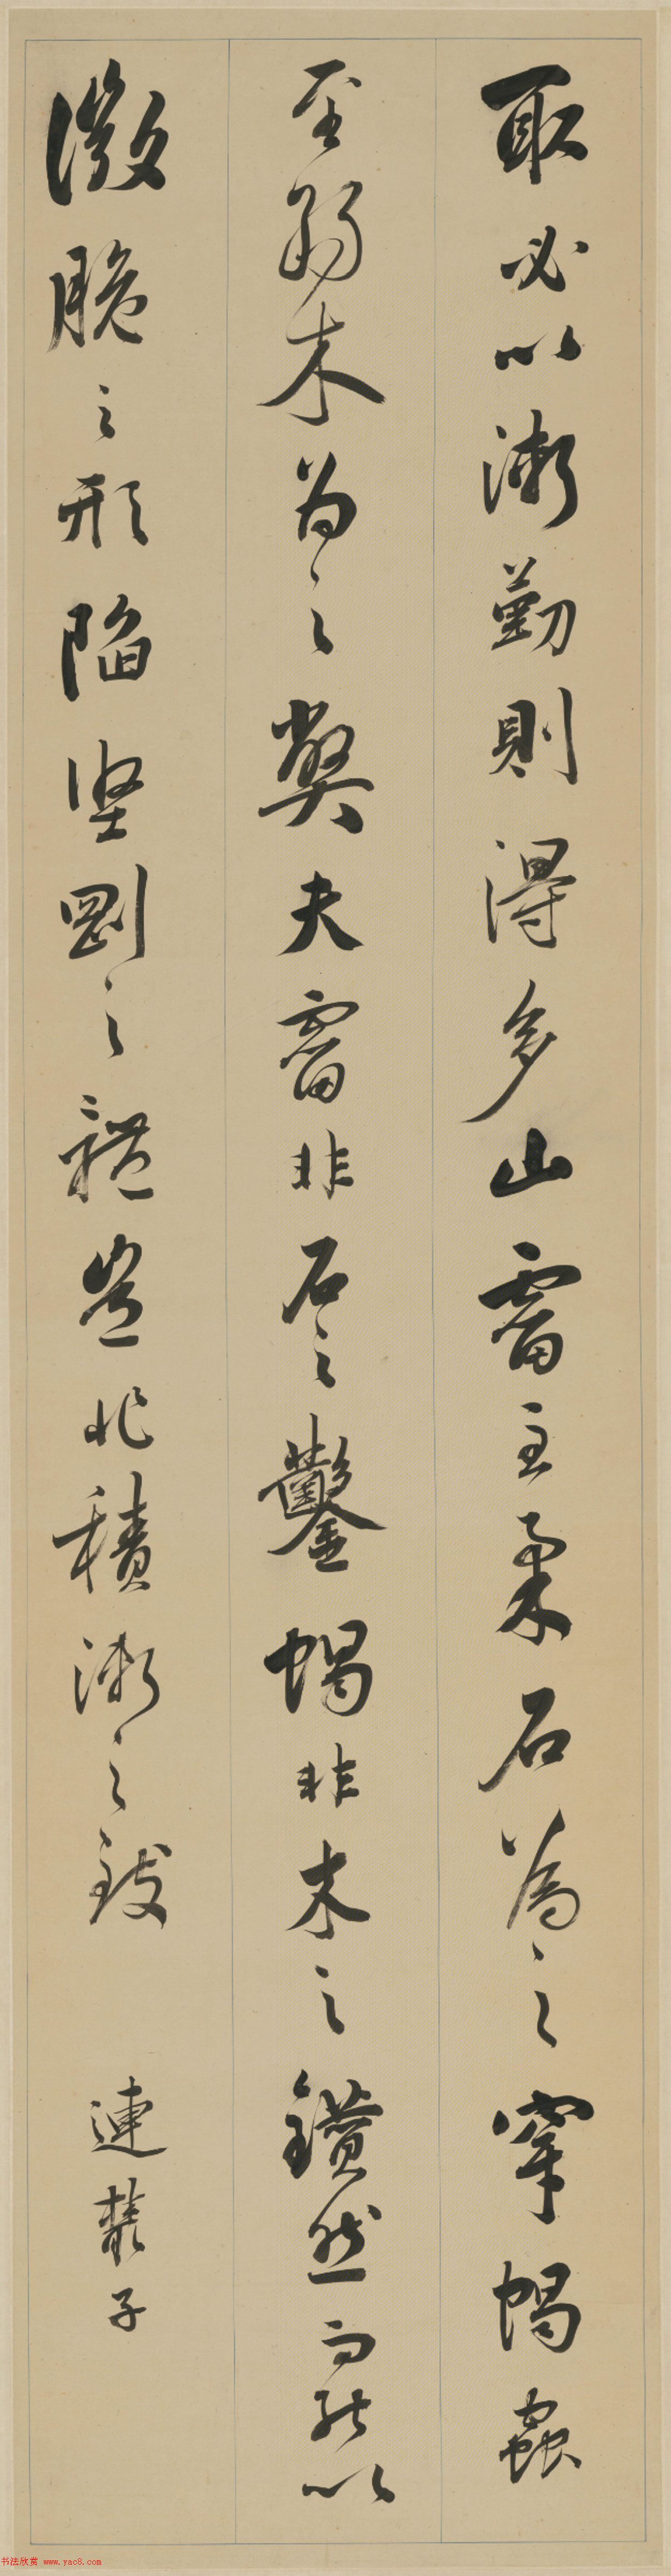 取必以漸勤則得多山霤至柔石為之穿蝎蟲
至弱木為之獘夫霤非石之鑿蝎非木之鑽然而能以
微脆之形陷堅剛之體豈非積漸之致
連叢子
书法欣赏 www.yac8.com